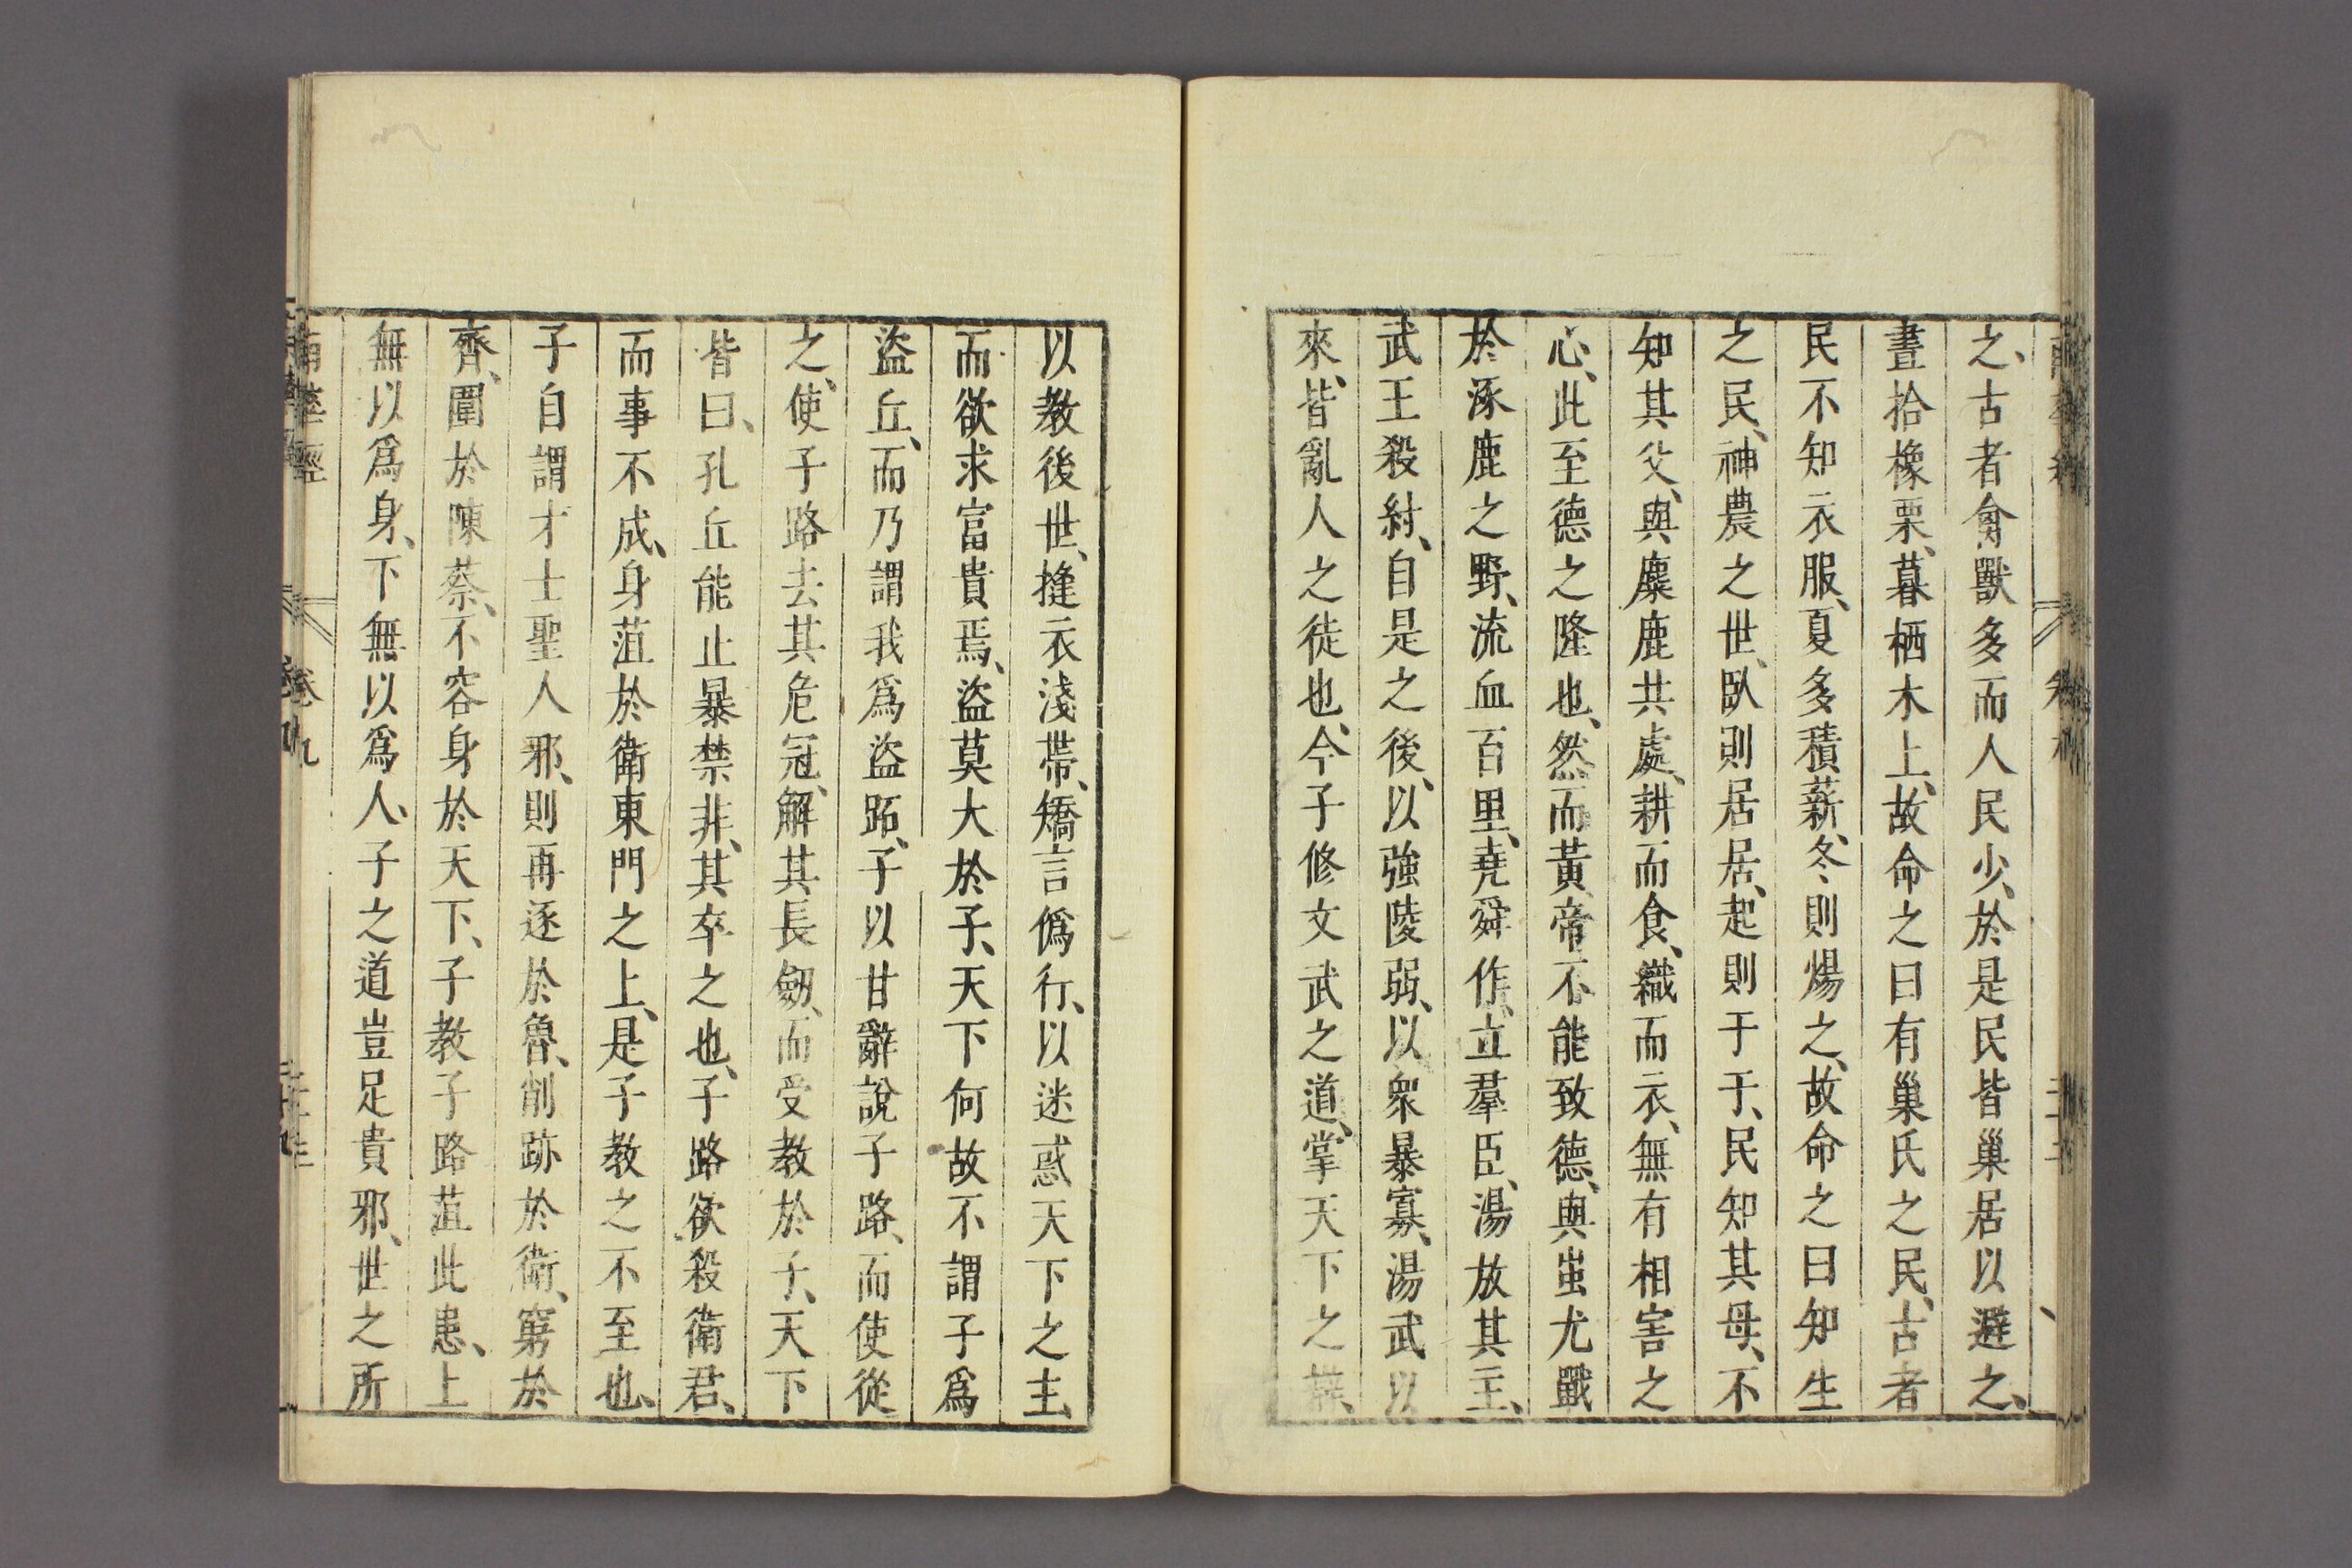 之、古者禽獸多而人民少、於是民皆巢居以避之、
晝拾橡栗、暮栖木上、故命之曰有巢氏之民、古者
民不知衣服、夏多積薪、冬則煬之、故命之曰知生
之民、神農之世、臥則居居、起則于于、民知其母、不
知其父、與麋鹿共處、耕而食、織而衣、無有相害之
心、此至德之隆也、然而黃帝不能致德、與蚩尤戰
於涿鹿之野、流血百里、堯舜作、立羣臣、湯放其主、
武王殺紂、自是之後、以強陵弱、以衆暴寡、湯武以
來、皆亂人之徒也、今子修文武之道、掌天下之辯、
以教後世、摓衣淺帶、矯言僞行、以迷惑天下之主、
而欲求富貴焉、盜莫大於子、天下何故不謂子爲
盜丘、而乃謂我爲盜跖、子以甘辭說子路、而使從
之、使子路去其危冠、解其長劒、而受教於子、天下
皆曰、孔丘能止暴禁非、其卒之也、子路欲殺衛君、
而事不成、身菹於衛東門之上、是子教之不至也、
子自謂才士聖人邪、則再逐於魯、削跡於衛、窮於
齊、圍於陳蔡、不容身於天下、子教子路菹此患、上
無以爲身、下無以爲人、子之道豈足貴邪、世之所
南華經
卷九